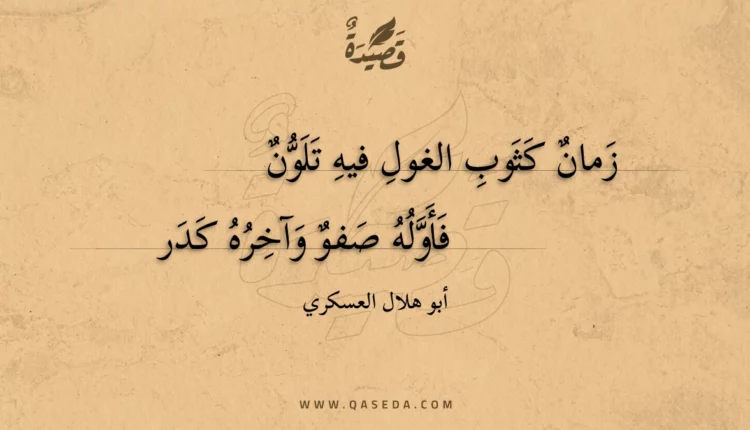 قَصِيْدَةٌ
زَمانٌ كَثَوبِ الغولِ فيهِ تَلَوُّنٌ
فَأَوَّلُهُ صَفوٌ وَآخِرُهُ كَدَر
أبو هلال العسكري
WWW.QASEDA.COM